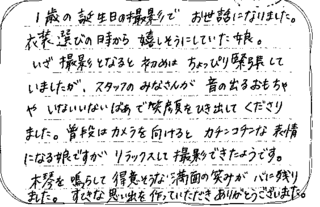 1歳の誕生日の撮影で お世話になりました。
衣装選びの時から嬉しそうにしていた娘。
いざ撮影となると初めはちょっぴり緊張して
いましたが、スタッフのみなさんが 音の出るおもちゃ
や いないいないばあで笑顔をひき出してくださり
ました。普段はカメラを向けるとカチンコチンな表情
になる娘ですが リラックスして撮影できたようです。
木琴を鳴らして得意そうな満面の笑みが心に残り
ました。すてきな思い出を作っていただきありがとうございました。